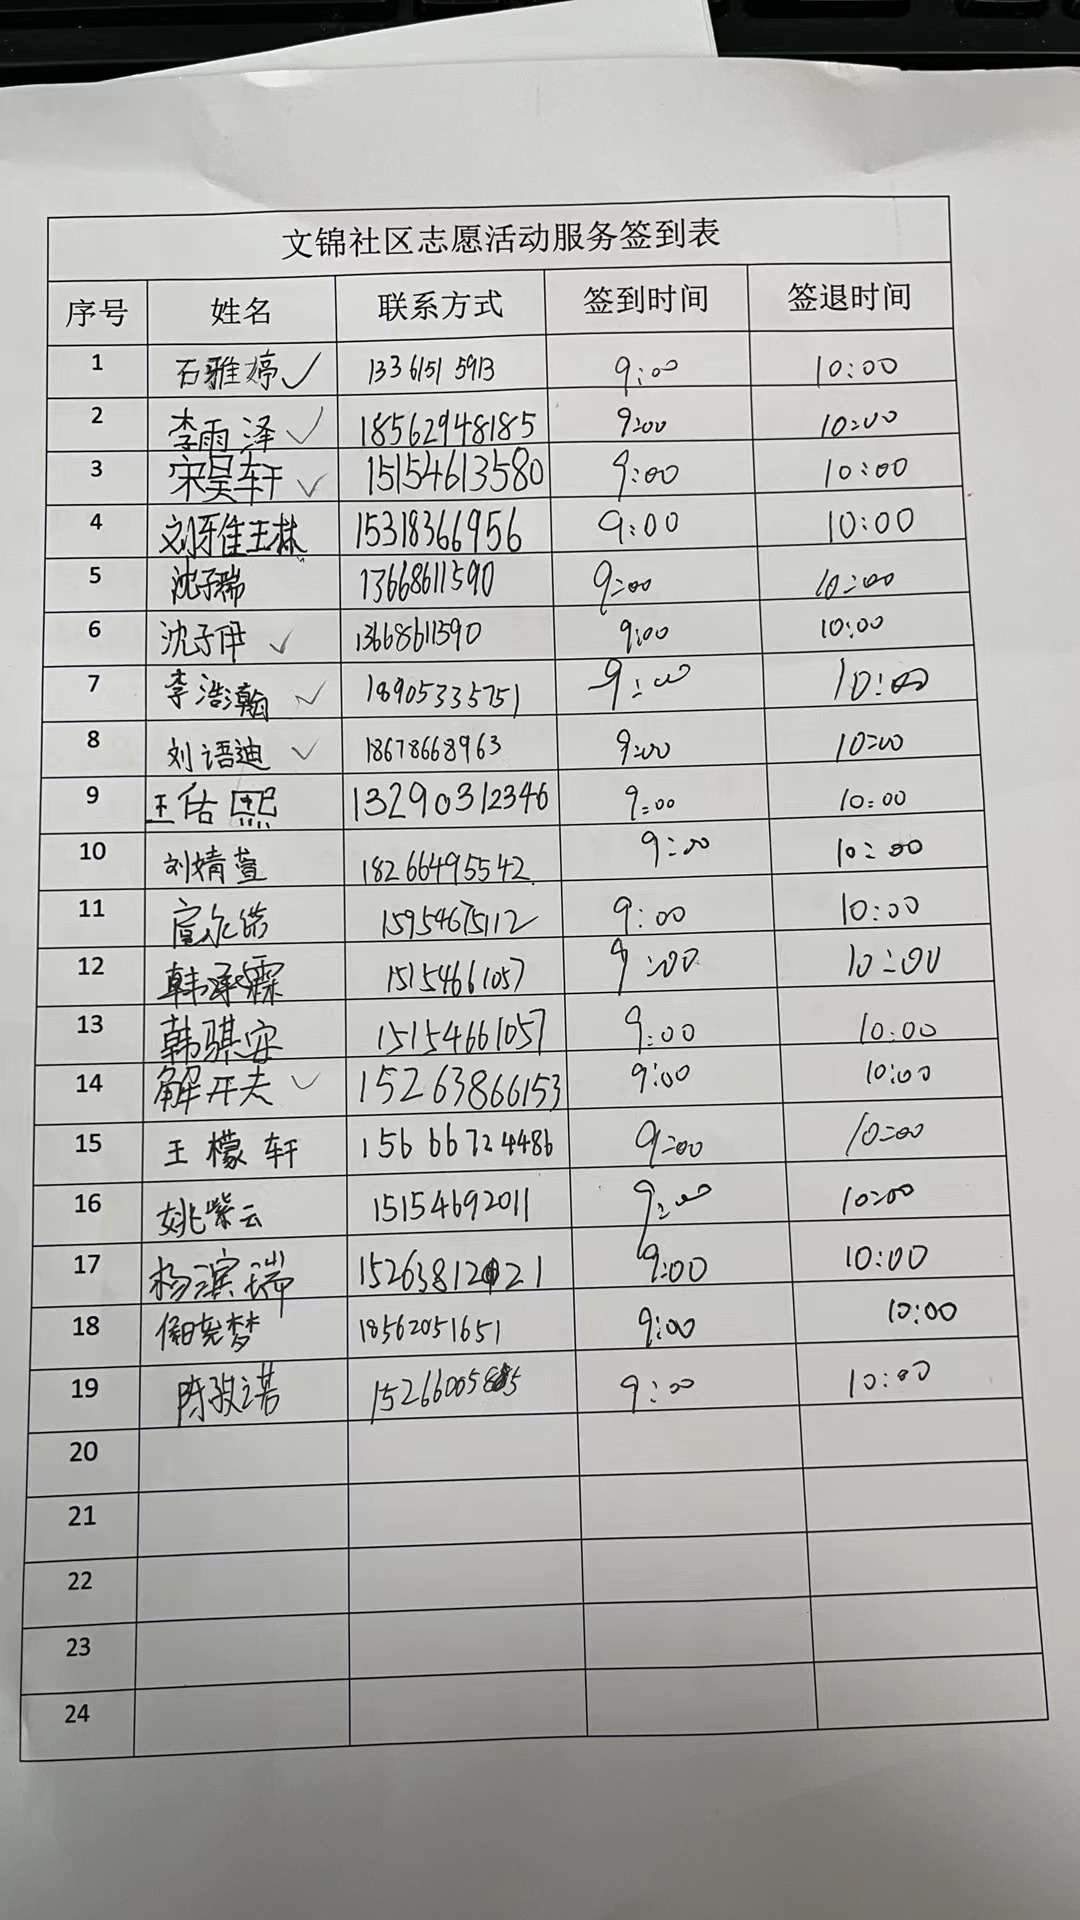 文锦社区志愿活动服务签到表
序号 姓名 联系方式 签到时间 签退时间
1 石雅婷✓ 13361515913 9:00 10:00
2 李雨泽✓ 18562948185 9:00 10:00
3 宋昊轩✓ 15154613580 9:00 10:00
4 刘雅琳 15318366956 9:00 10:00
5 沈子瑞 13668611590 9:00 10:00
6 沈子伊✓ 13668611590 9:00 10:00
7 李浩瀚✓ 18905335751 9:00 10:00
8 刘语迪✓ 18678668963 9:00 10:00
9 王佑熙 13290312346 9:00 10:00
10 刘婧萱 18266495542 9:00 10:00
11 15954675112 9:00 10:00
12 韩承霖 15154661057 9:00 10:00
13 韩骐安 15154661057 9:00 10:00
14 解开夫✓ 15263866153 9:00 10:00
15 王檬轩 15666724486 9:00 10:00
16 姚紫云 15154692011 9:00 10:00
17 杨滨瑞 9:00 10:00
18 18562051651 9:00 10:00
19 9:00 10:00
20
21
22
23
24